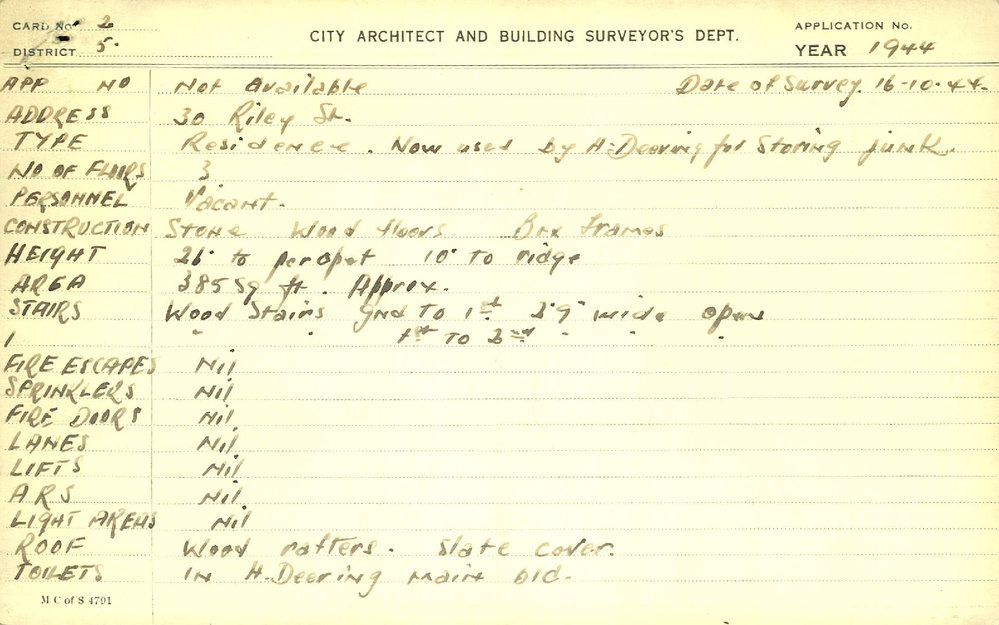 CARD No. 2
DISTRICT 5.
CITY ARCHITECT AND BUILDING SURVEYOR'S DEPT.
APPLICATION No.
YEAR 1944
APP NO Not Available Date of Survey 16-10-44.
ADDRESS 30 Riley St.
TYPE Residence. Now used by H. Deering for Storing junk.
NO OF FLOORS 3
PERSONNEL Vacant.
CONSTRUCTION Stone Wood floors Box frames
HEIGHT 26' to parapet 10' To ridge
AREA 385 sq ft. Approx.
STAIRS Wood Stairs gnd To 1st 3'9" wide open
" " 1st To 2nd " " "
FIRE ESCAPES Nil
SPRINKLERS Nil
FIRE DOORS Nil
LANES Nil
LIFTS Nil
ARS Nil
LIGHT AREAS Nil
ROOF Wood rafters. Slate cover.
TOILETS In H. Deering main bld.
M C of S 4791